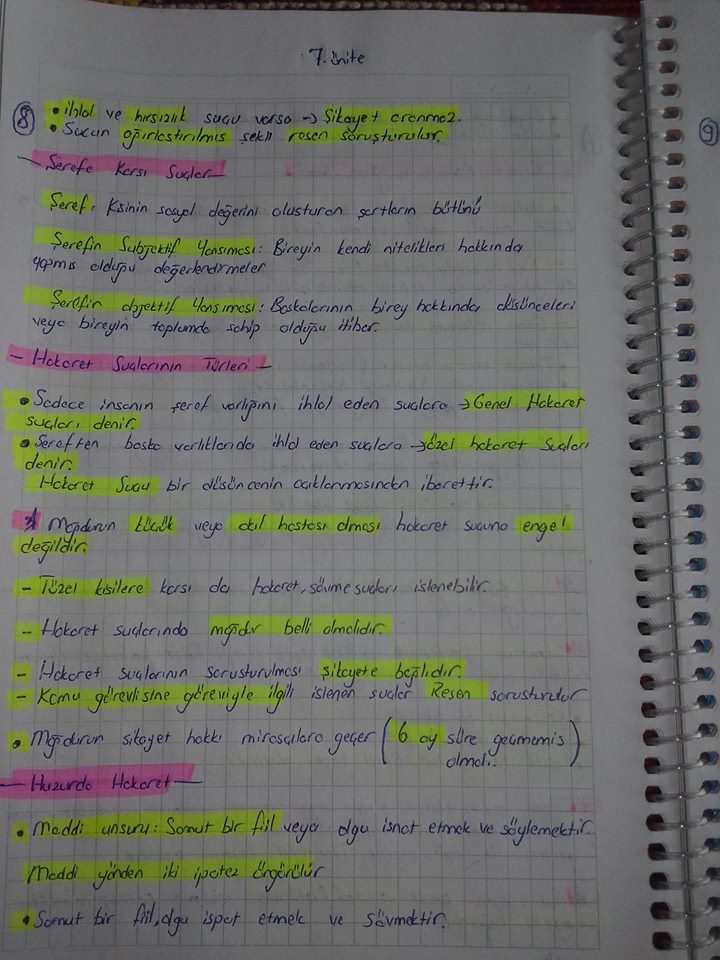 7. ünite
8
• ihlal ve hırsızlık suçu varsa → Şikayet aranmaz.
9
• Suçun ağırlaştırılmış şekli resen soruşturulur.
— Şerefe Karşı Suçlar —
Şeref: Kişinin sosyal değerini oluşturan şartların bütünü
Şerefin Subjektif Yansıması: Bireyin kendi nitelikleri hakkında
yapmış olduğu değerlendirmeler
Şerefin objektif Yansıması: Başkalarının birey hakkında düşünceleri
veya bireyin toplumda sahip olduğu itibar.
— Hakaret Suçlarının Türleri —
• Sadece insanın şeref varlığını ihlal eden suçlara → Genel Hakaret
suçları denir.
• Şereften başka varlıklarıda ihlal eden suçlara → özel hakaret suçları
denir.
Hakaret Suçu bir düşüncenin açıklanmasından ibarettir.
* Mağdurun küçük veya akıl hastası olması hakaret suçuna engel
değildir.
- Tüzel kişilere karşı da hakaret, sövme suçları işlenebilir.
- Hakaret suçlarında mağdur belli olmalıdır.
- Hakaret suçlarının soruşturulması şikayete bağlıdır.
- Kamu görevlisine göreviyle ilgili işlenen suçlar Resen soruşturulur
• Mağdurun şikayet hakkı mirasçılara geçer (6 ay süre geçmemiş
olmalı.)
— Huzurda Hakaret —
• Maddi unsuru: Somut bir fiil veya olgu isnat etmek ve söylemektir.
Maddi yönden iki ipotez öngörülür
• Somut bir fiil, olgu ispat etmek ve sövmektir.